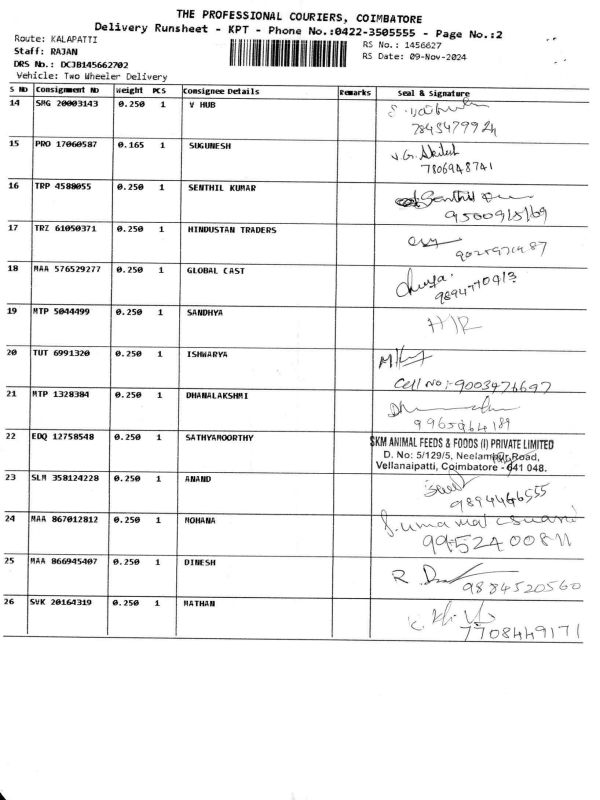 THE PROFESSIONAL COURIERS, COIMBATORE
Delivery Runsheet - KPT - Phone No.:0422-3505555 - Page No.:2
Route: KALAPATTI
RS No.: 1456627
Staff: RAJAN
RS Date: 09-Nov-2024
DRS No.: DCJB145662702
Vehicle: Two Wheeler Delivery
S No Consignment No Weight PCS Consignee Details Remarks Seal & Signature
14 SMG 20003143 0.250 1 V HUB
15 PRO 17060587 0.165 1 SUGUNESH
7806948741
16 TRP 4588055 0.250 1 SENTHIL KUMAR Senthil
17 TRZ 61050371 0.250 1 HINDUSTAN TRADERS
18 MAA 576529277 0.250 1 GLOBAL CAST
9894770413
19 MTP 5044499 0.250 1 SANDHYA
20 TUT 6991320 0.250 1 ISHWARYA
Cell No:-9003476697
21 MTP 1328384 0.250 1 DHANALAKSHMI
9965964189
22 EDQ 12758548 0.250 1 SATHYAMOORTHY SKM ANIMAL FEEDS & FOODS (I) PRIVATE LIMITED
D. No: 5/129/5, Neelambur Road,
Vellanaipatti, Coimbatore - 641 048.
23 SLM 358124228 0.250 1 ANAND
9894446555
24 MAA 867012812 0.250 1 MOHANA
9952400811
25 MAA 866945407 0.250 1 DINESH
9884520560
26 SVK 20164319 0.250 1 MATHAN
7708449171